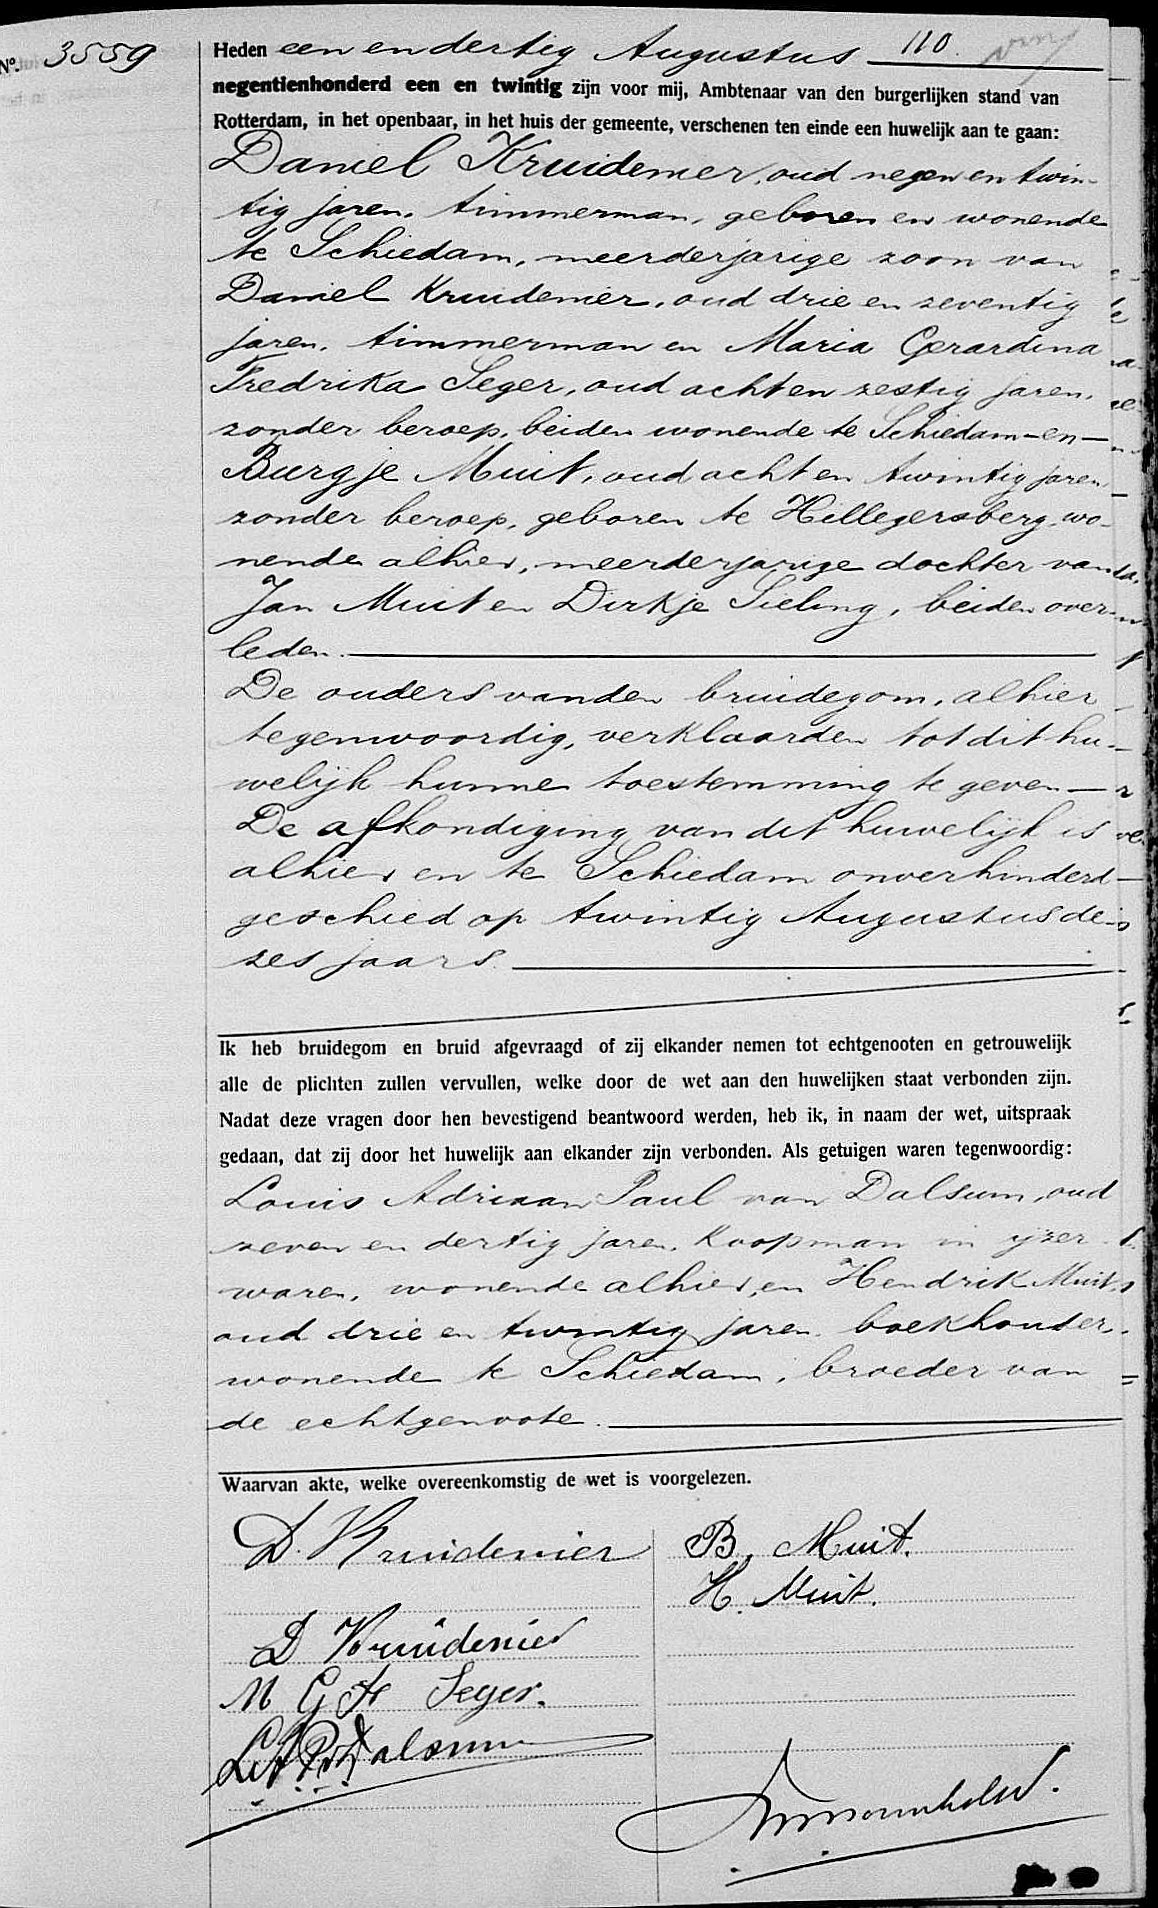 Nº. 3559
Heden een en dertig Augustus 110.
negentienhonderd een en twintig zijn voor mij, Ambtenaar van den burgerlijken stand van
Rotterdam, in het openbaar, in het huis der gemeente, verschenen ten einde een huwelijk aan te gaan:
Daniel Kruidenier, oud negen en twin-
tig jaren, timmerman, geboren en wonende
te Schiedam, meerderjarige zoon van
Daniel Kruidenier, oud drie en zeventig
jaren, timmerman en Maria Gerardina
Fredrika Seger, oud acht en zestig jaren,
zonder beroep, beiden wonende te Schiedam - en -
Burgje Muit, oud acht en twintig jaren,
zonder beroep, geboren te Hillegersberg, wo-
nende alhier, meerderjarige dochter van
Jan Muit en Dirkje Sieling, beiden over-
leden.
De ouders van den bruidegom, alhier
tegenwoordig, verklaarden tot dit hu-
welijk hunne toestemming te geven
De afkondiging van dit huwelijk is
alhier en te Schiedam onverhinderd
geschied op twintig Augustus de-
zes jaars.
Ik heb bruidegom en bruid afgevraagd of zij elkander nemen tot echtgenooten en getrouwelijk
alle de plichten zullen vervullen, welke door de wet aan den huwelijken staat verbonden zijn.
Nadat deze vragen door hen bevestigend beantwoord werden, heb ik, in naam der wet, uitspraak
gedaan, dat zij door het huwelijk aan elkander zijn verbonden. Als getuigen waren tegenwoordig:
Louis Adriaan Paul van Dalsum, oud
zeven en dertig jaren, koopman in ijzer-
waren, wonende alhier, en Hendrik Muit,
oud drie en twintig jaren, boekhouder,
wonende te Schiedam, broeder van
de echtgenoote.
Waarvan akte, welke overeenkomstig de wet is voorgelezen.
D. Kruidenier
B. Muit.
H. Muit.
D Kruidenier
M G F Seger.
L.A.P.v.Dalsum